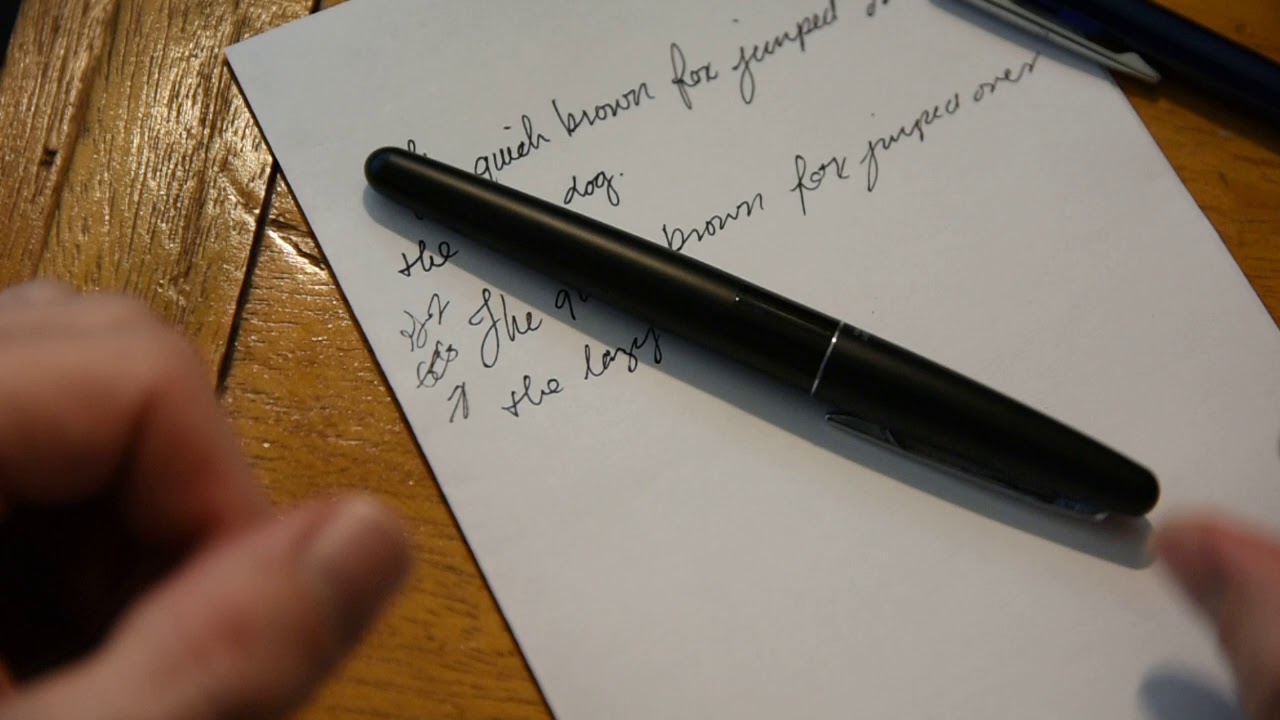 quick brown fox jumped
dog.
the
The brown fox jumped over
the lazy